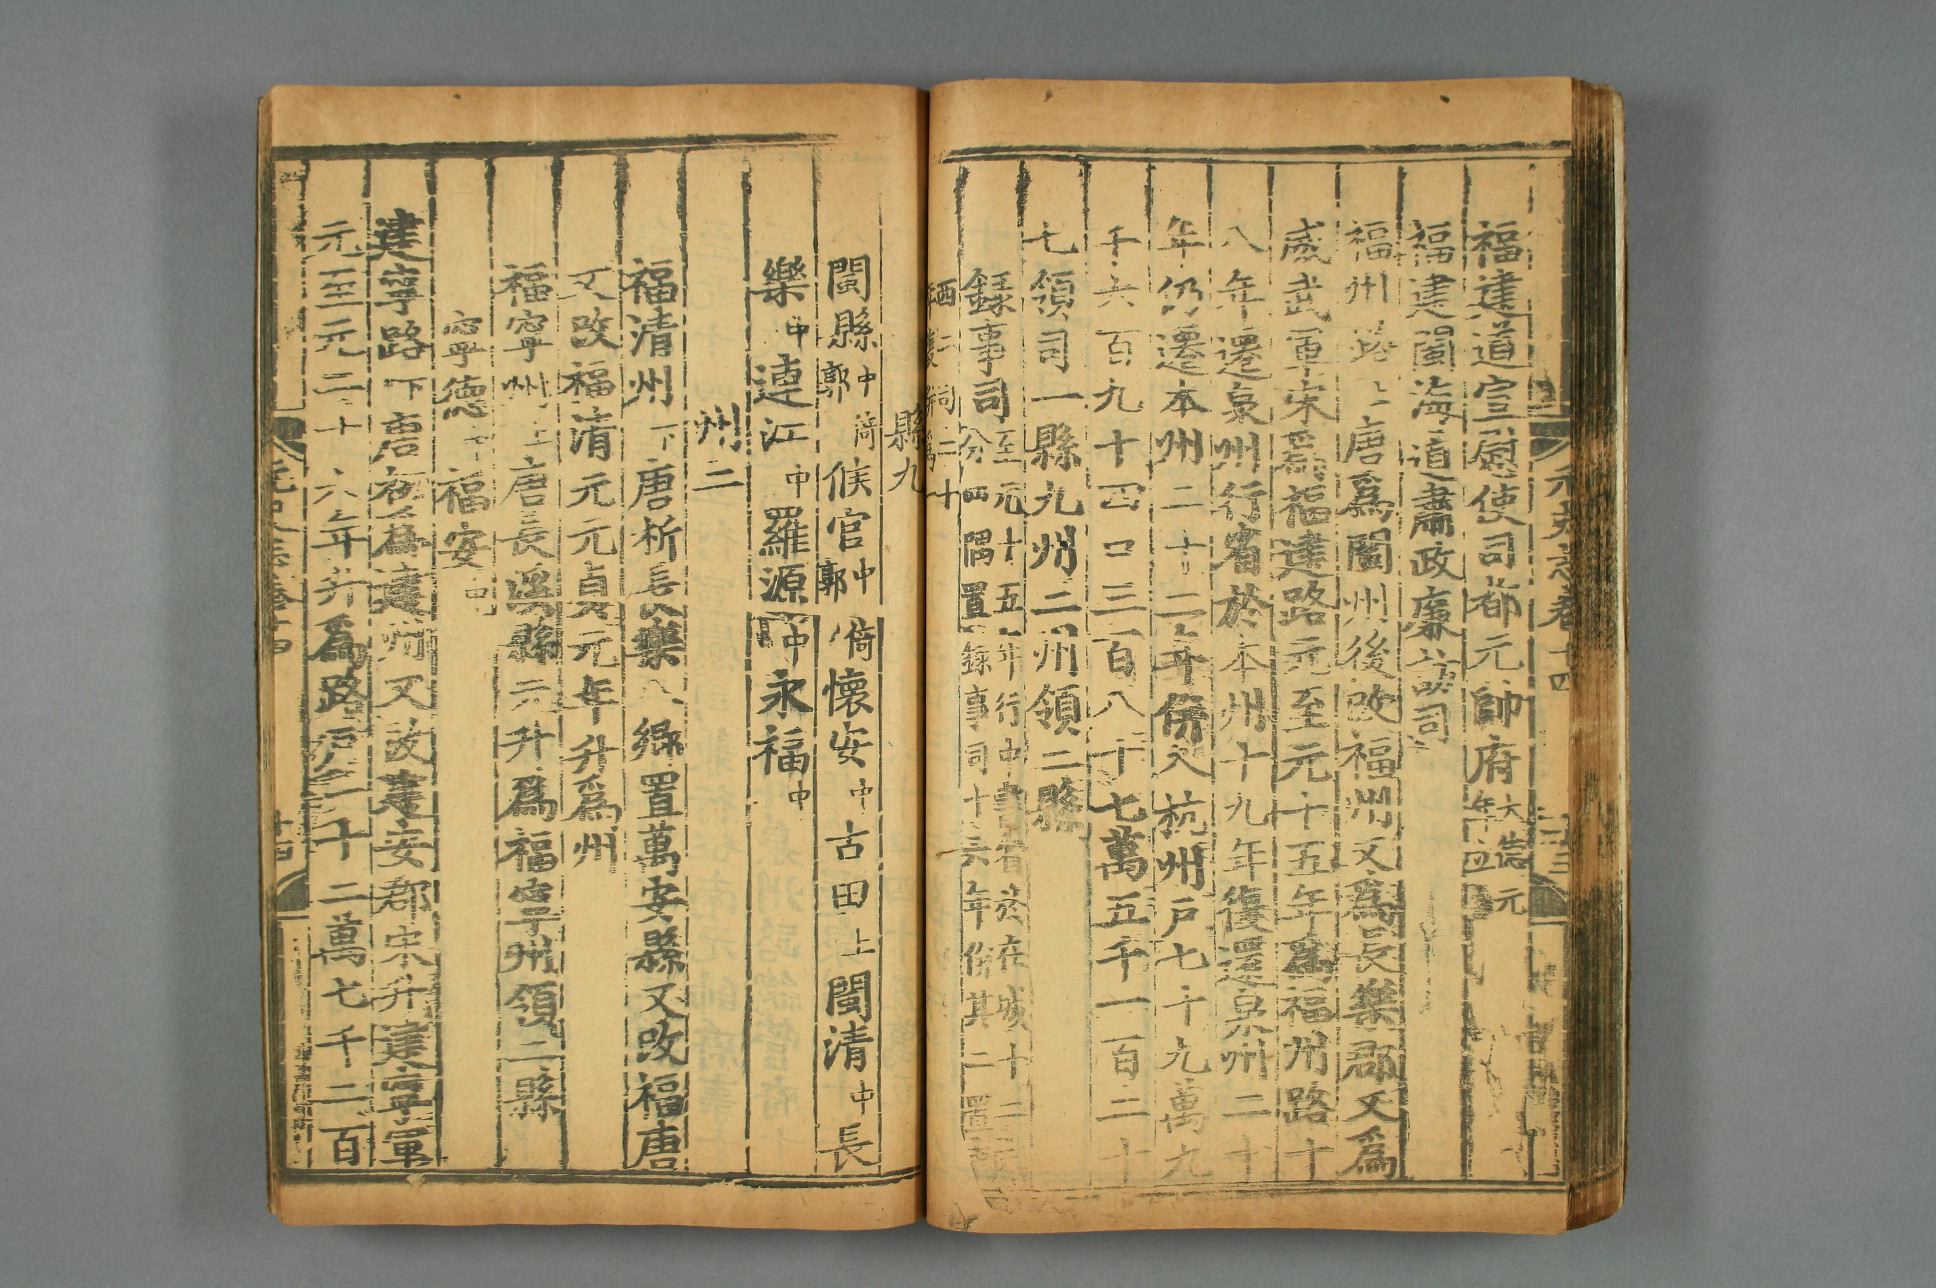 福建道宣慰使司都元帥府大德元年立
福建閩海道肅政廉訪司
福州路上唐爲閩州後改福州又爲長樂郡又爲
威武軍宋爲福建路元至元十五年爲福州路十
八年遷泉州行省於本州十九年復還泉州二十
年仍遷本州二十二年併入杭州戶七十九萬九
千六百九十四口三百八十七萬五千一百二十
七領司一縣九州二州領二縣
錄事司至元十五年行中書省於在城十二
分四隅置錄事司十六年併其二置
西二司爲二十
縣九
閩縣中倚郭候官中倚郭懷安中古田上閩清中長
樂中連江中羅源中永福中
州二
福清州下唐析長樂八鄉置萬安縣又改福唐
又改福清元元貞元年升爲州
福寧州上唐長溪縣元升爲福寧州領二縣
寧德中福安中
建寧路下唐初爲建州又改建安郡宋升建寧軍
元至元二十六年升爲路戶一十二萬七千二百